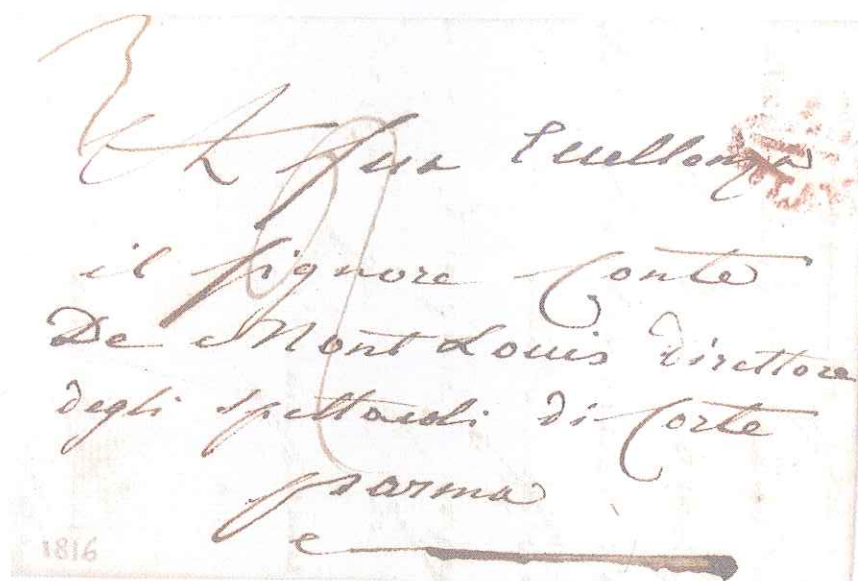 A Sua Eccellenza
il Signore Conte
De Mont Louis direttore
degli Spettacoli di Corte
Parma
1816